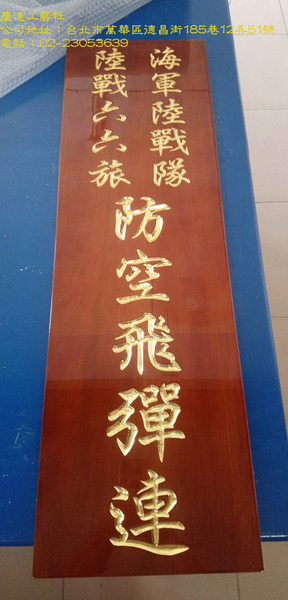 慶達工藝社
公司地址：台北市萬華區德昌街185巷12弄51號
電話：02-23053639
海軍陸戰隊
陸戰六六旅
防空飛彈連